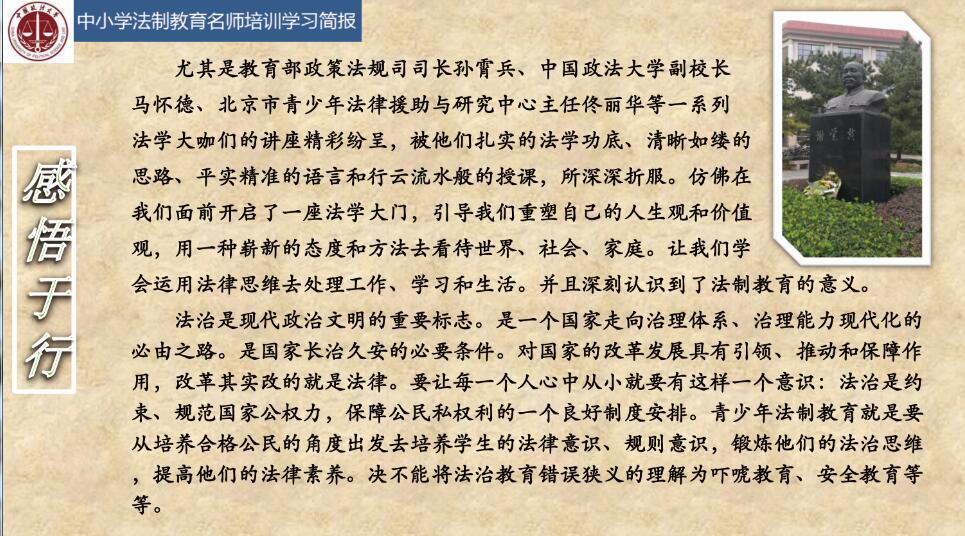 中小学法制教育名师培训学习简报
感悟于行
尤其是教育部政策法规司司长孙霄兵、中国政法大学副校长
马怀德、北京市青少年法律援助与研究中心主任佟丽华等一系列
法学大咖们的讲座精彩纷呈，被他们扎实的法学功底、清晰如缕的
思路、平实精准的语言和行云流水般的授课，所深深折服。仿佛在
我们面前开启了一座法学大门，引导我们重塑自己的人生观和价值
观，用一种崭新的态度和方法去看待世界、社会、家庭。让我们学
会运用法律思维去处理工作、学习和生活。并且深刻认识到了法制教育的意义。
法治是现代政治文明的重要标志。是一个国家走向治理体系、治理能力现代化的
必由之路。是国家长治久安的必要条件。对国家的改革发展具有引领、推动和保障作
用，改革其实改的就是法律。要让每一个人心中从小就要有这样一个意识：法治是约
束、规范国家公权力，保障公民私权利的一个良好制度安排。青少年法制教育就是要
从培养合格公民的角度出发去培养学生的法律意识、规则意识，锻炼他们的法治思维
，提高他们的法律素养。决不能将法治教育错误狭义的理解为吓唬教育、安全教育等
等。